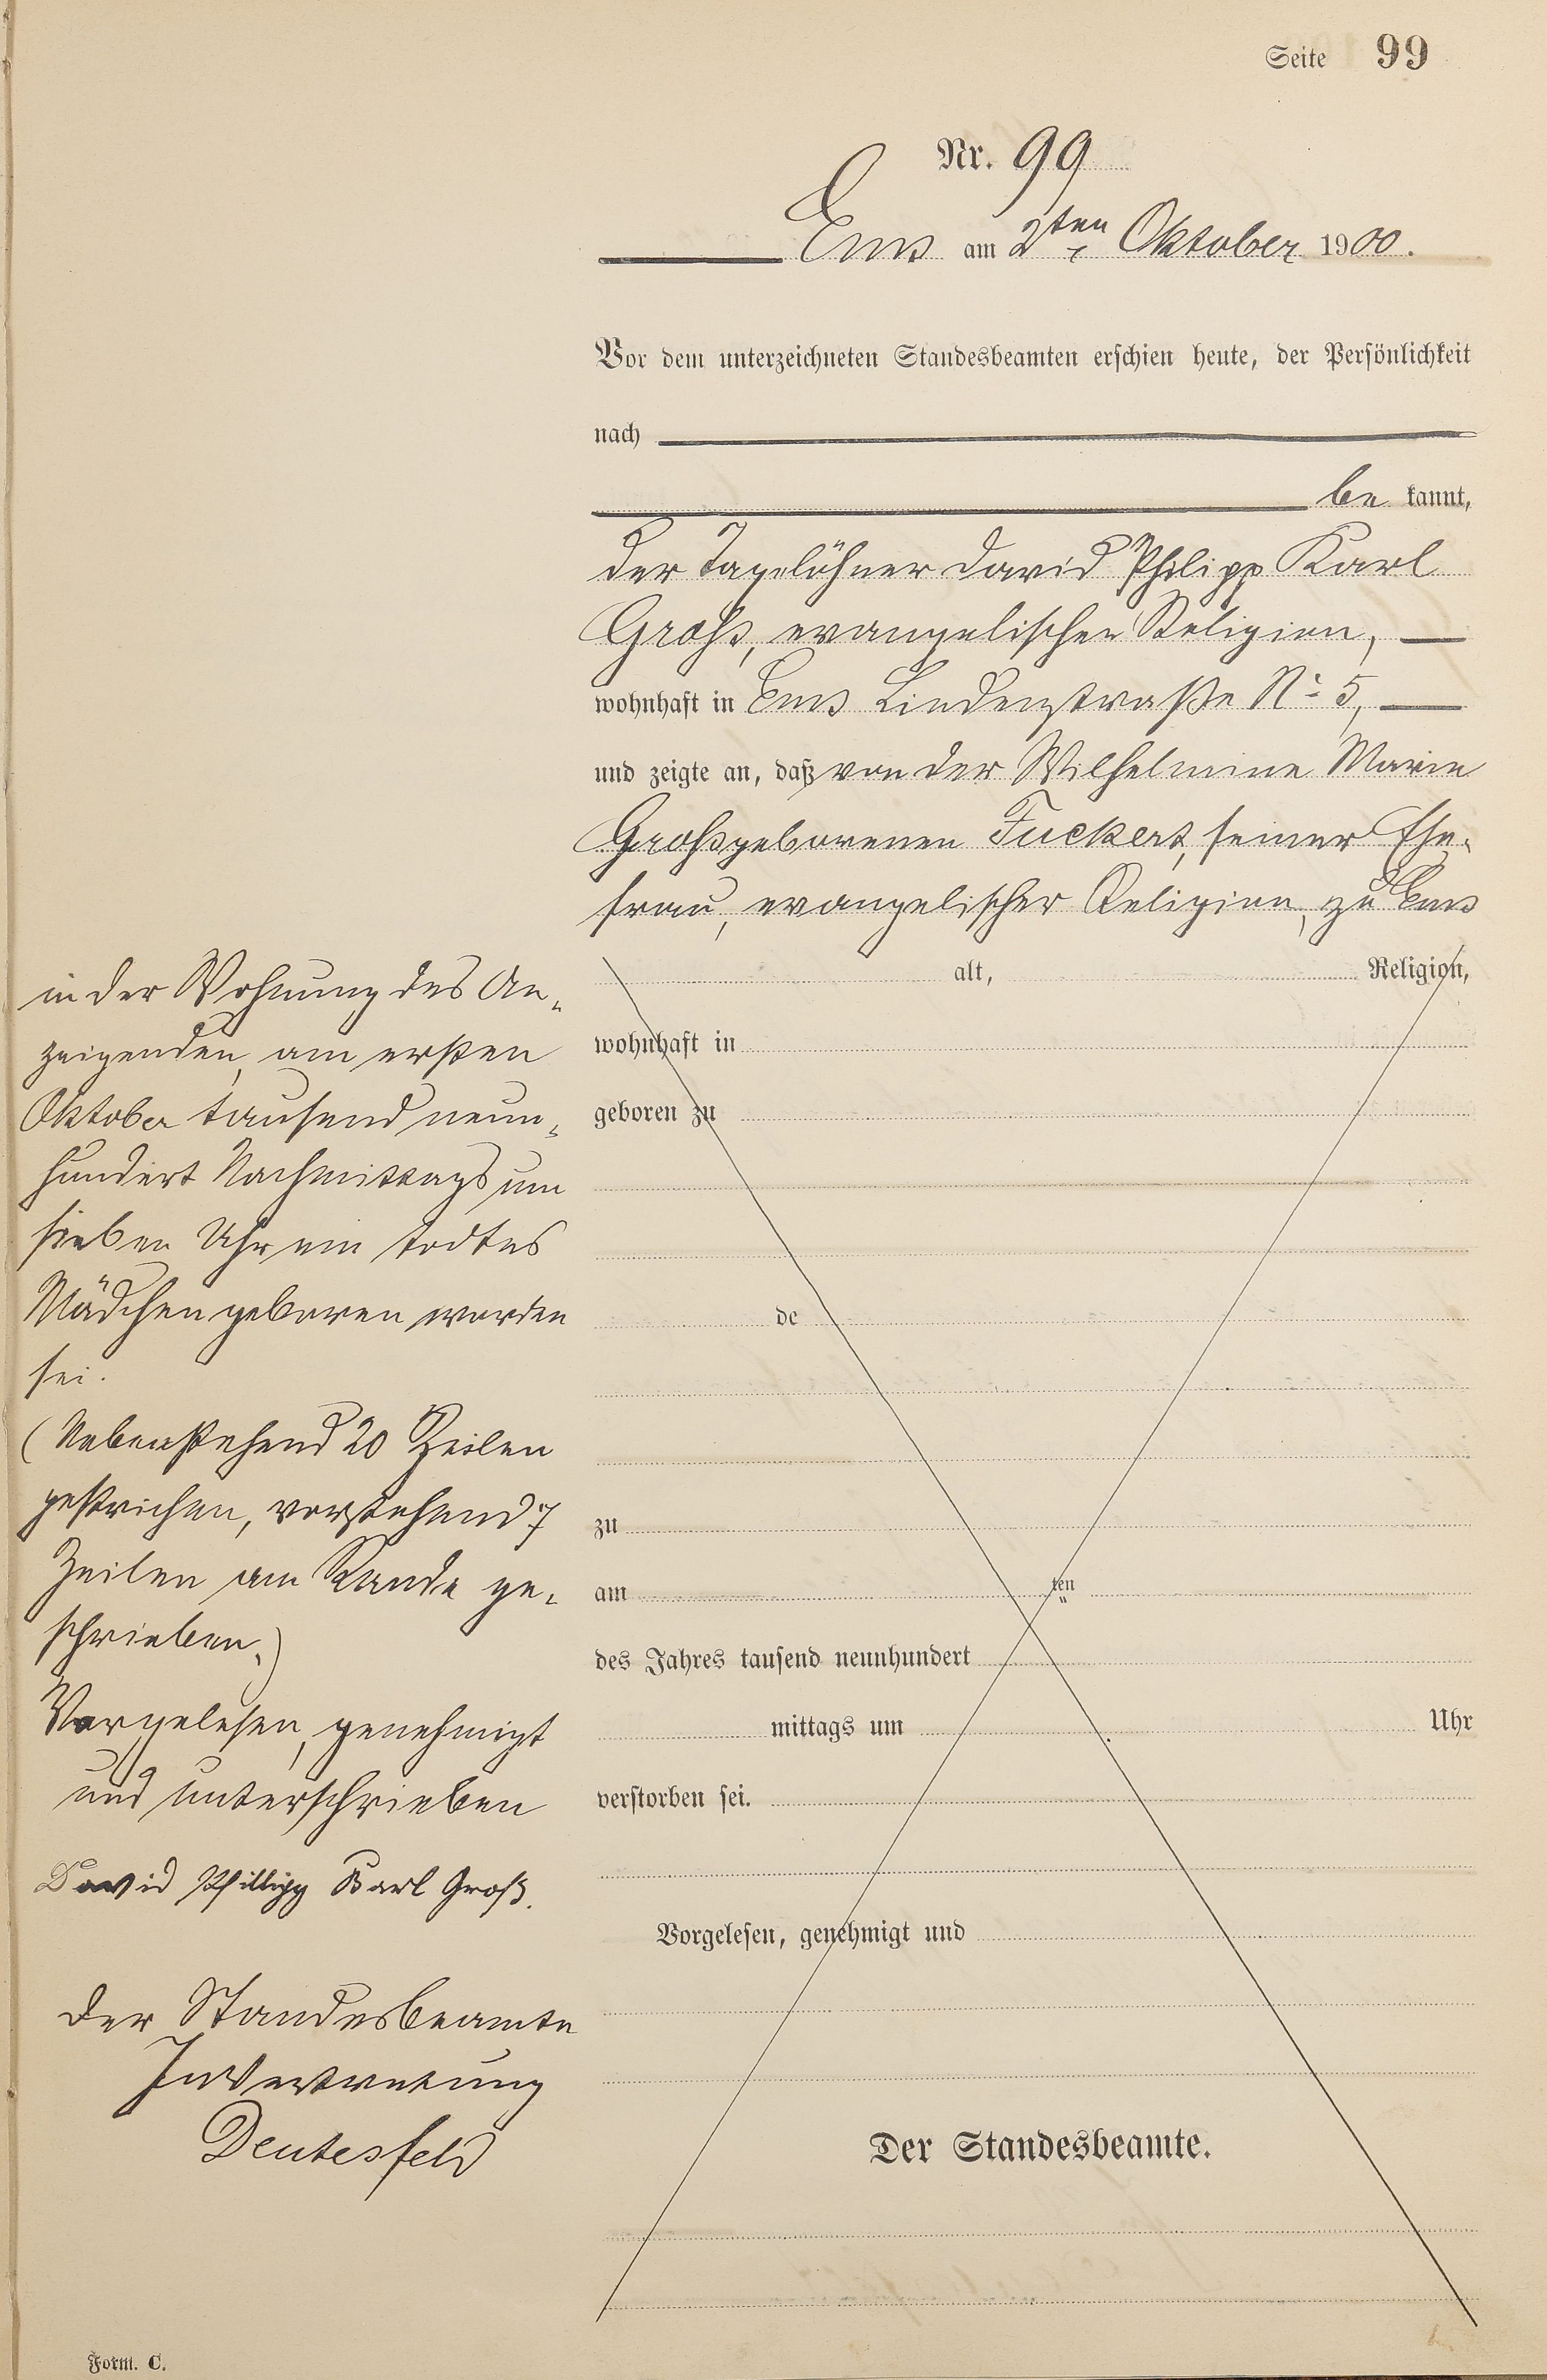 Seite 99
Nr. 99
Ems am 2ten Oktober 1900.
Vor dem unterzeichneten Standesbeamten erschien heute, der Persönlichkeit
nach
be kannt,
der Tagelöhner David Philipp Karl
Groß, evangelischer Religion,
wohnhaft in Ems Lindenstraße No 5,
und zeigte an, daß von der Wilhelmine Marie
Groß geborenen Fuckert, seiner Ehe-
frau, evangelischer Religion, zu Ems
in der Wohnung des An-
zeigenden, am ersten
Oktober tausend neun-
hundert Nachmittags um
sieben Uhr ein todtes
Mädchen geboren worden
sei.
(Nebenstehend 20 Zeilen
gestrichen, vorstehend 7
Zeilen am Rande ge-
schrieben.)
Vorgelesen, genehmigt
und unterschrieben
David Phillipp Karl Groß.
Der Standesbeamte
In Vertretung
Deutesfeld
alt, Religion,
wohnhaft in
geboren zu
de
zu
am ten
des Jahres tausend neunhundert
mittags um Uhr
verstorben sei.
Vorgelesen, genehmigt und
Der Standesbeamte.
Form. C.